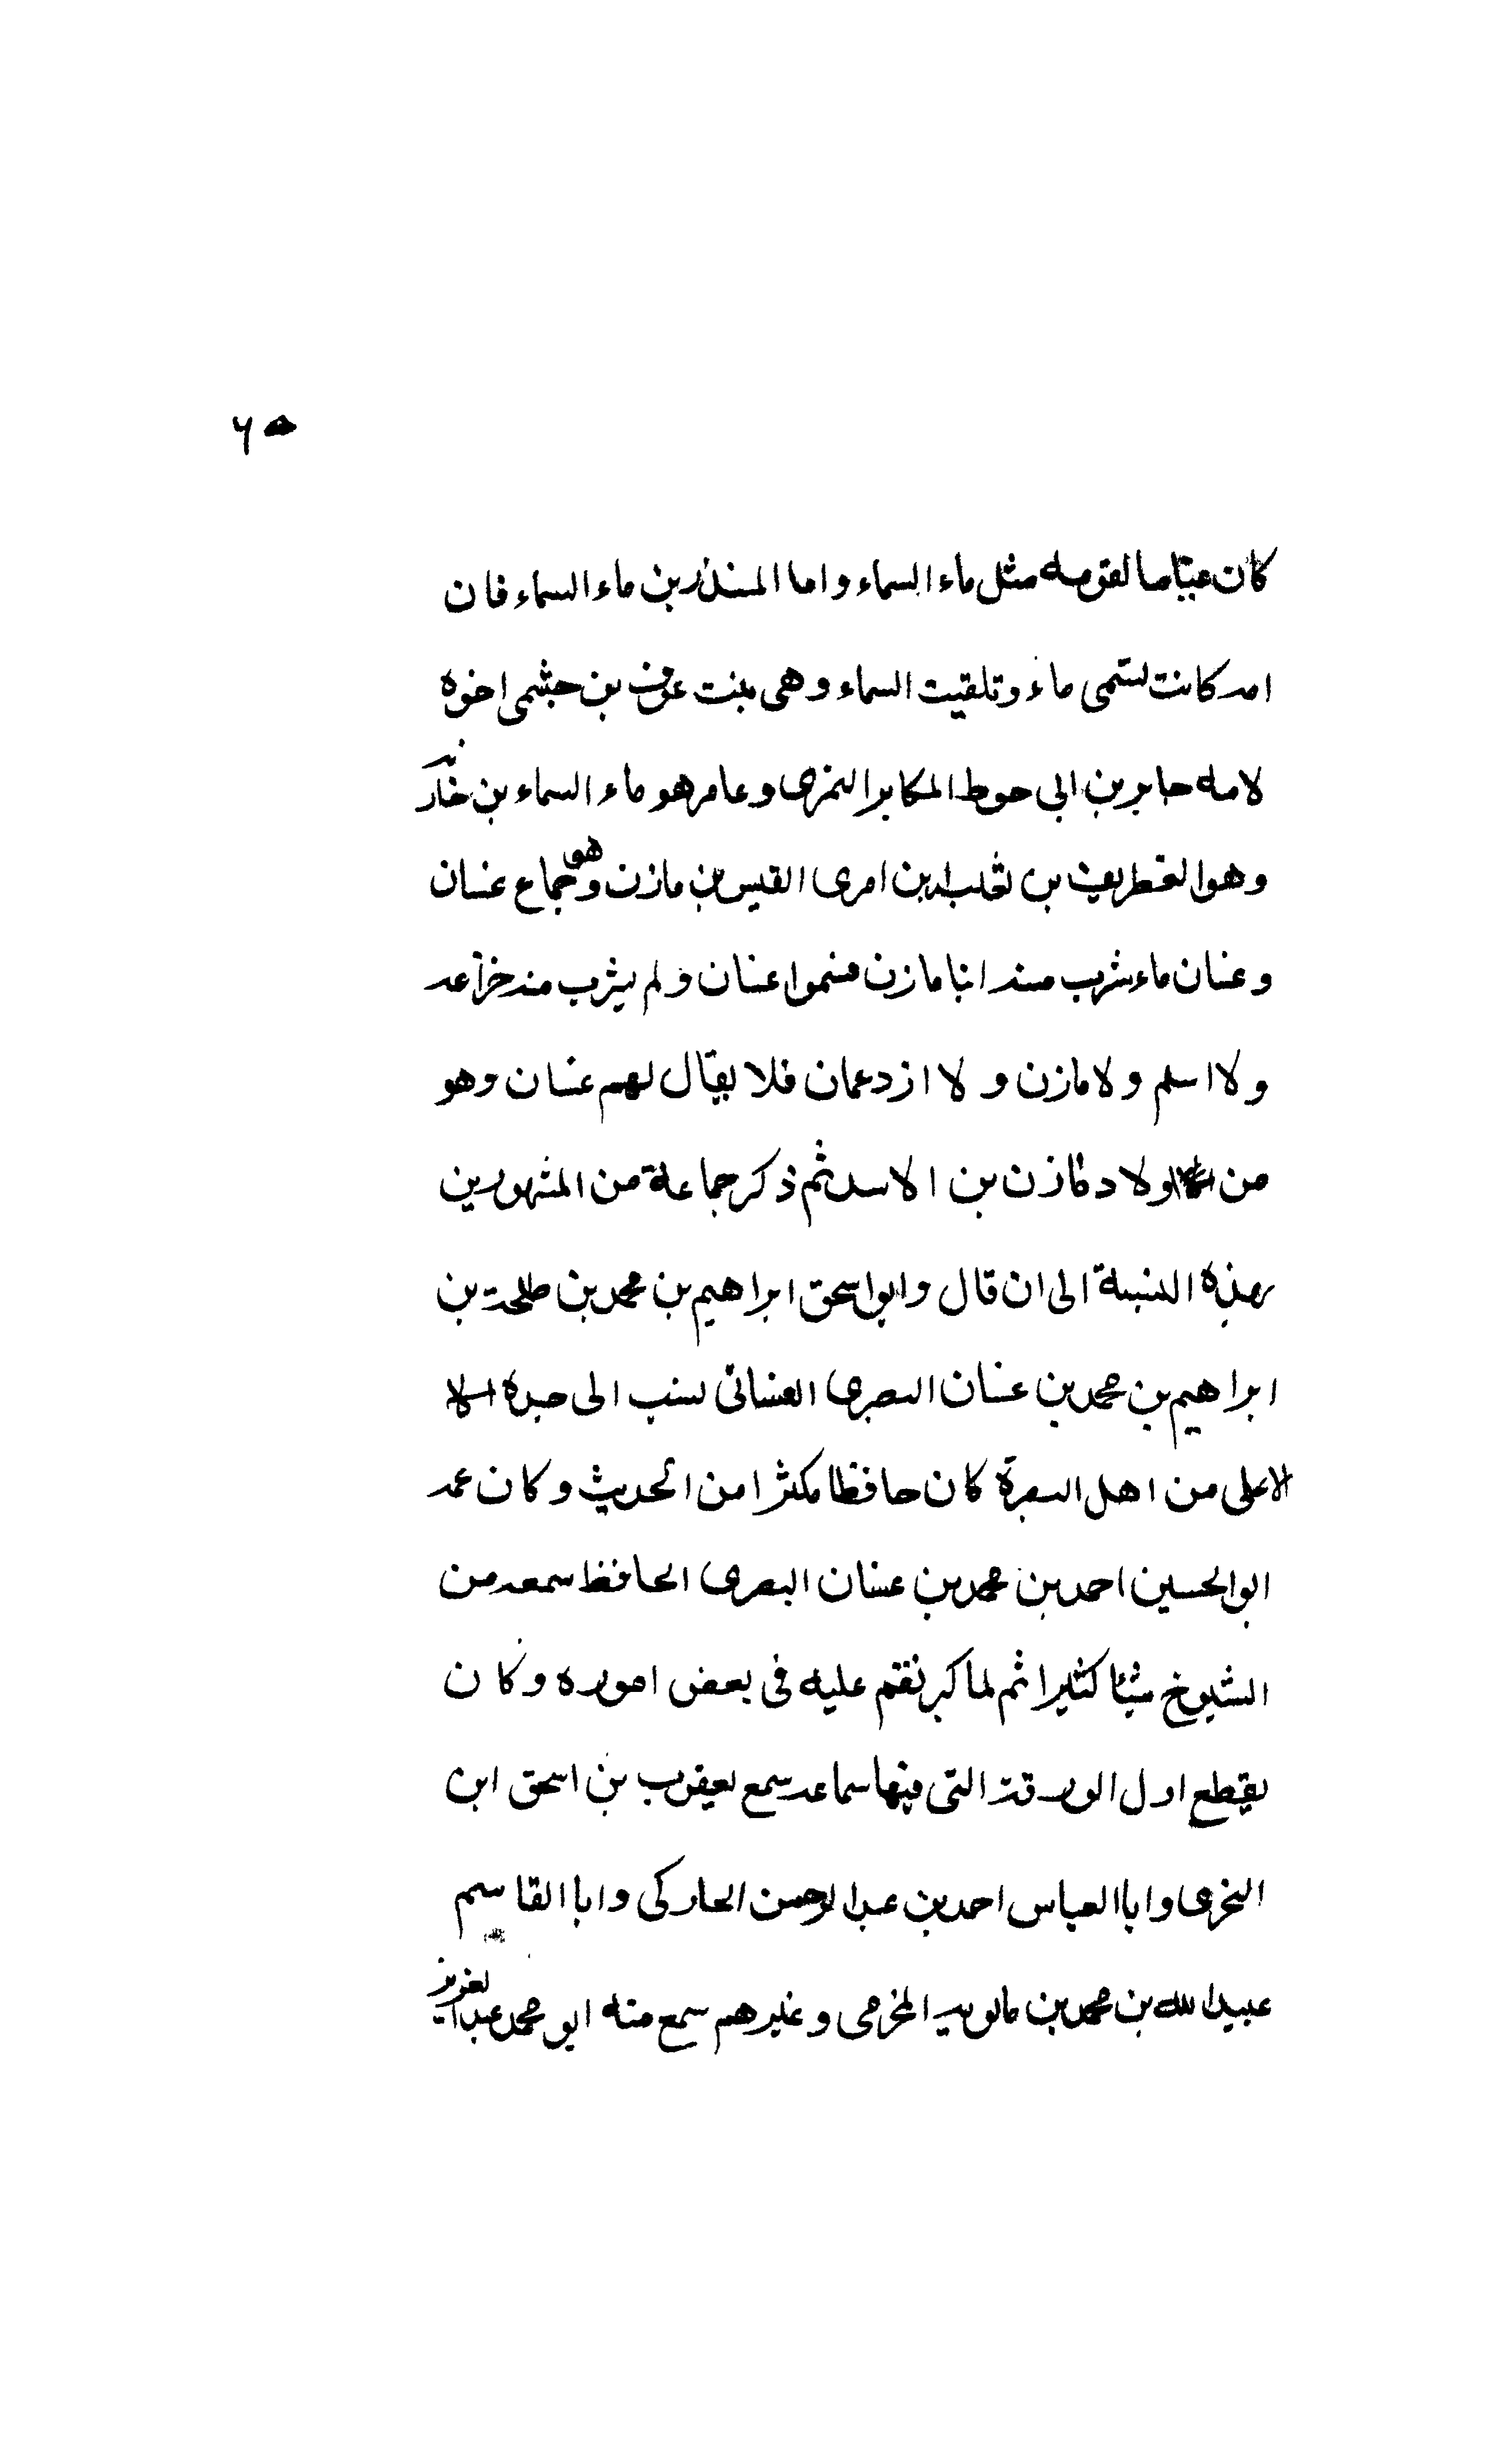 ٦
كان عياما لقومه مثل ماء السماء واما المنذر بن ماء السماء فان
امه كانت تسمى ماء وتلقيت السماء وهى بنت عوف بن جشمى اخوه
لامه جابر بن ابى حوط المكابر النمرى وعامر هو ماء السماء بن
وهو الغطريف بن ثعلبه بن امرى القيس بن مازن وهو جماع غسان
وغسان ماء شرب منه ابنا مازن فسموا غسان ولم يشرب منه خزآعه
ولا اسلم ولا مازن ولا ازد عمان فلا يقال لهم غسان وهو
من اولاد مازن بن الاسد ثم ذكر جماعة من المشهورين
بهذه النسبة الى ان قال وابو اسحق ابراهيم بن محمد بن طلحة بن
ابراهيم بن محمد بن غسان البصرى الغسانى نسب الى جده
الاعلى من اهل البصرة كان حافظا مكثرا من الحديث وكان عمه
ابو الحسين احمد بن محمد بن غسان البصرى الحافظ سمعه من
الشيوخ شيئا كثيرا ثم لما كبر نقم عليه فى بعض اموره وكان
يقطع اول الورقة التى فيها سماعه سمع يعقوب بن اسحق ابن
وابا العباس احمد بن عبد الرحمن الحاركى وابا القاسم
عبيد الله بن محمد بن بابويه المخرمى وغيرهم سمع منه ابو محمد عبد العزيز